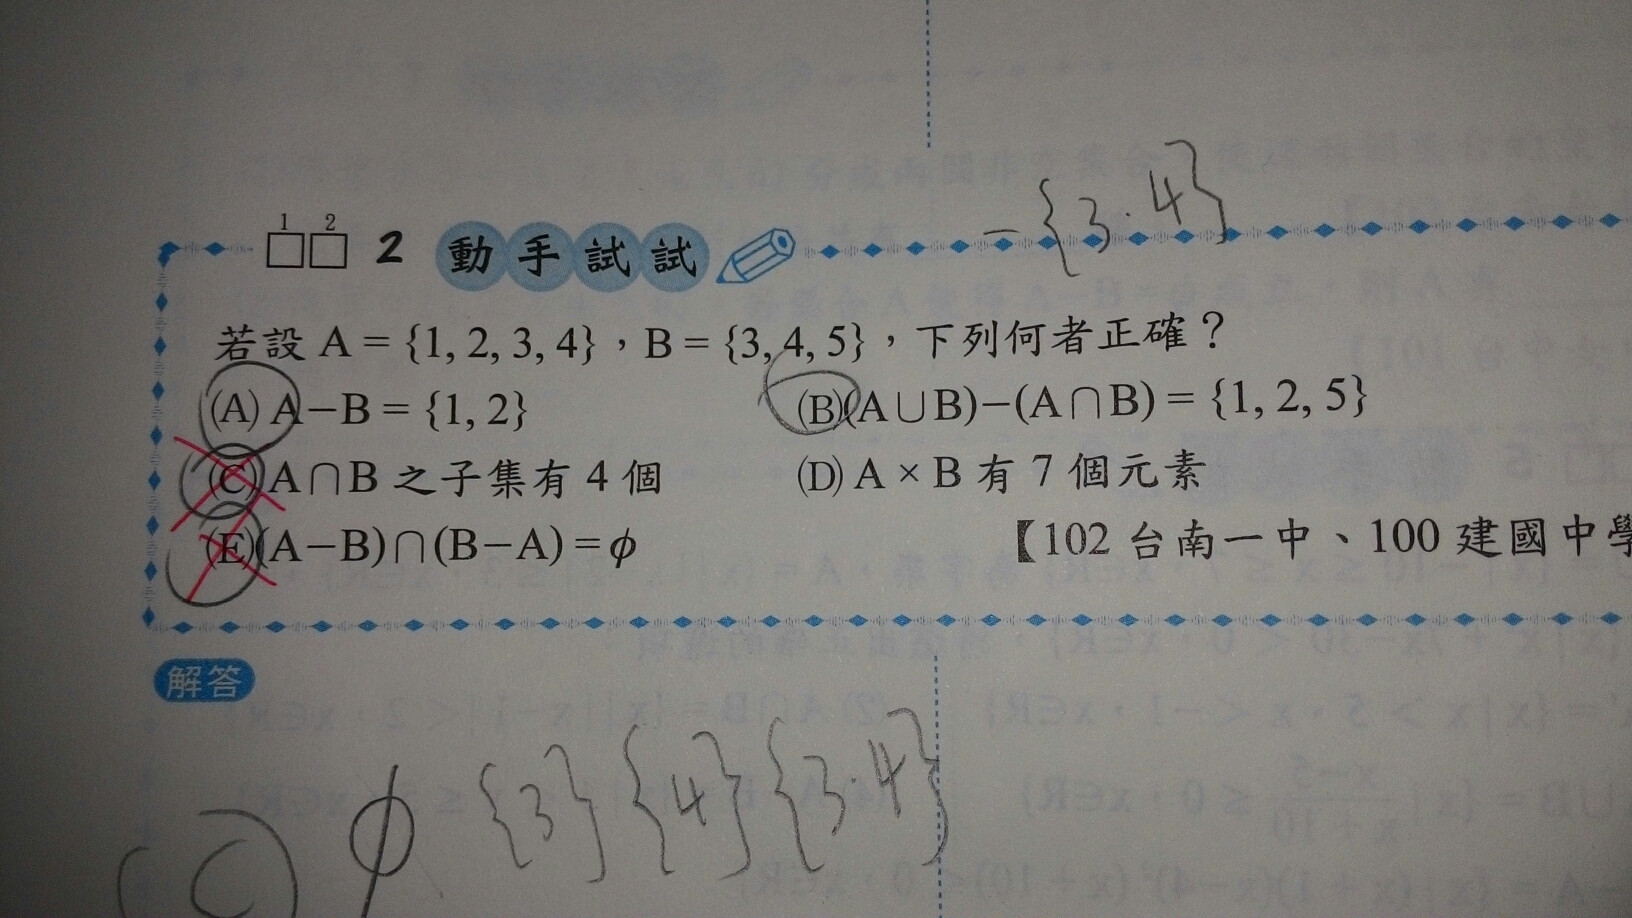 -{3.4}
1 2
□□ 2 動手試試
若設 A = {1, 2, 3, 4}，B = {3, 4, 5}，下列何者正確？
(A) A－B = {1, 2} (B)(A∪B)－(A∩B) = {1, 2, 5}
(C) A∩B 之子集有 4 個 (D) A × B 有 7 個元素
(E)(A－B)∩(B－A) = ϕ 【102 台南一中、100 建國中學
解答
(C) ϕ {3} {4} {3.4}